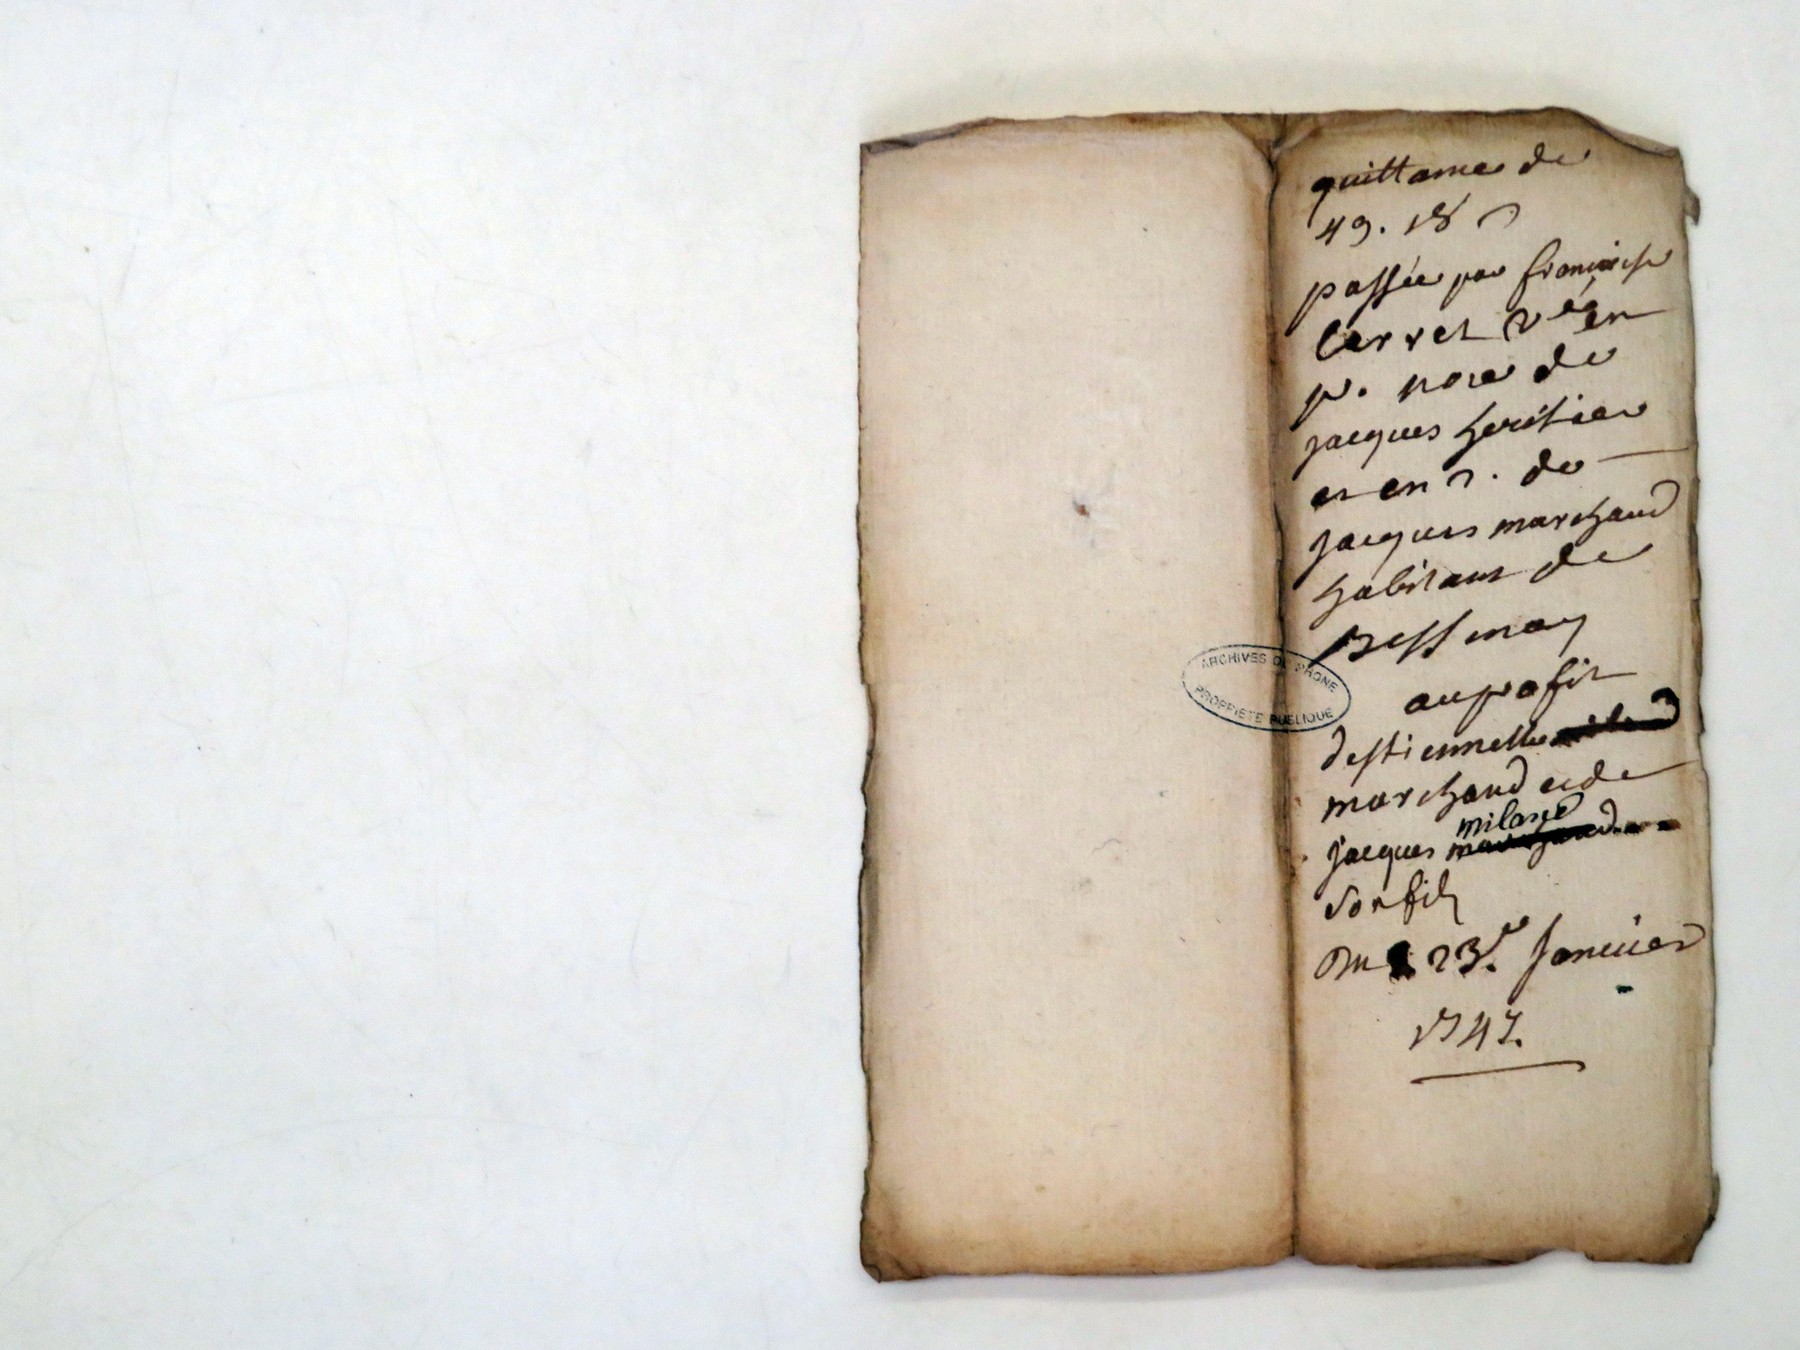 quittance de
49. 18
passée par francoise
Cerret v.e en
p. noce de
jacques heritier
et en 2. de
jacques marchand
habitant de
Bessenay
au profit
destiennette
marchand et de
miland
jacques marchand
son fils
Du 23.e Janvier
1747.
ARCHIVES DU RHONE
PROPRIETE PUBLIQUE